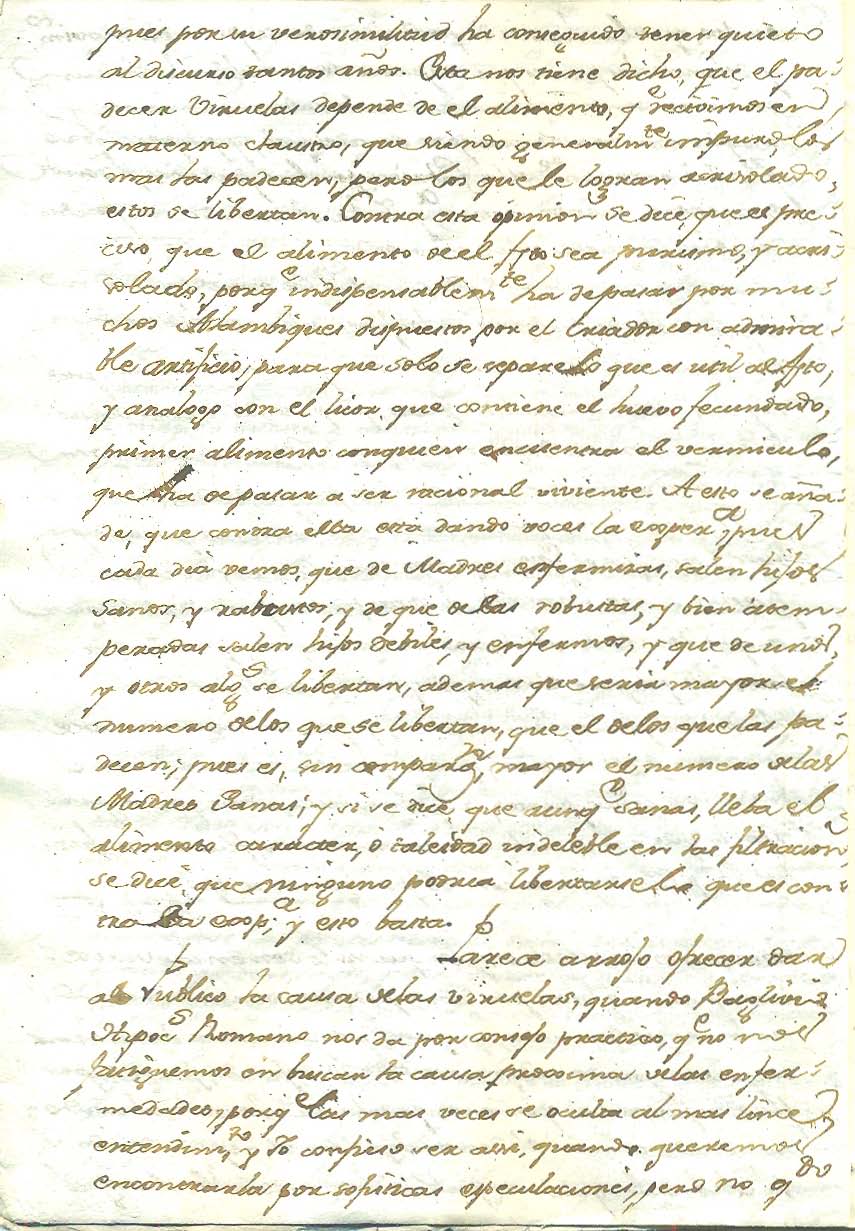 pues por su verosimilitud ha conseguido tener quieto
al discurso tantos años. Esta nos tiene dicho, que el pa-
decer Viruelas depende de el alimento, q.e recivimos en
materno claustro, que siendo generalm.te impuro, los
mas las padecen; pero los que le logran acrisolado,
estos se libertan. Contra esta opinion se dice, que es pre-
ciso, que el alimento de el feto sea purisimo, y acri-
solado, porq.e indispensablem.te ha de pasar por mu-
chos Alambiques dispuestos por el Criador con admira-
ble artificio, para que solo se separe lo que es util al feto,
y analogo con el licor, que contiene el huevo fecundado,
primer alimento con quien encuentra el vermiculo,
que ha de pasar a ser racional viviente. A esto se aña-
de, que contra ella esta dando voces la exper.a, pues
cada dia vemos, que de Madres enfermizas, salen hijos
sanos, y robustos, y de que de las robustas, y bien atem-
peradas salen hijos debiles, y enfermos, y que de unos,
y otros alg.s se libertan, ademas que seria mayor el
numero delos que se libertan, que el delos que las pa-
decen; pues es, sin comparaz.on, mayor el numero delas
Madres Sanas; y si se dice, que aunq.e sanas, lleba el
alimento caracter, ó taleidad indeleble en las filtracion.s
se dice, que ninguno podria libertarse lo que es con-
tra la exp.a; y esto basta.
Parece arrojo ofrecer dar
al Publico la causa delas viruelas, quando Baglivio
Hipoc.s Romano nos da por consejo practico, q.e no nos
fatiguemos en buscar la causa procsima delas enfer-
medades, porq.e las mas veces se oculta al mas lince
entendim.to, y Yo confieso ser assi, quando queremos
encontrarla por sofisticas especulaciones, pero no q.do